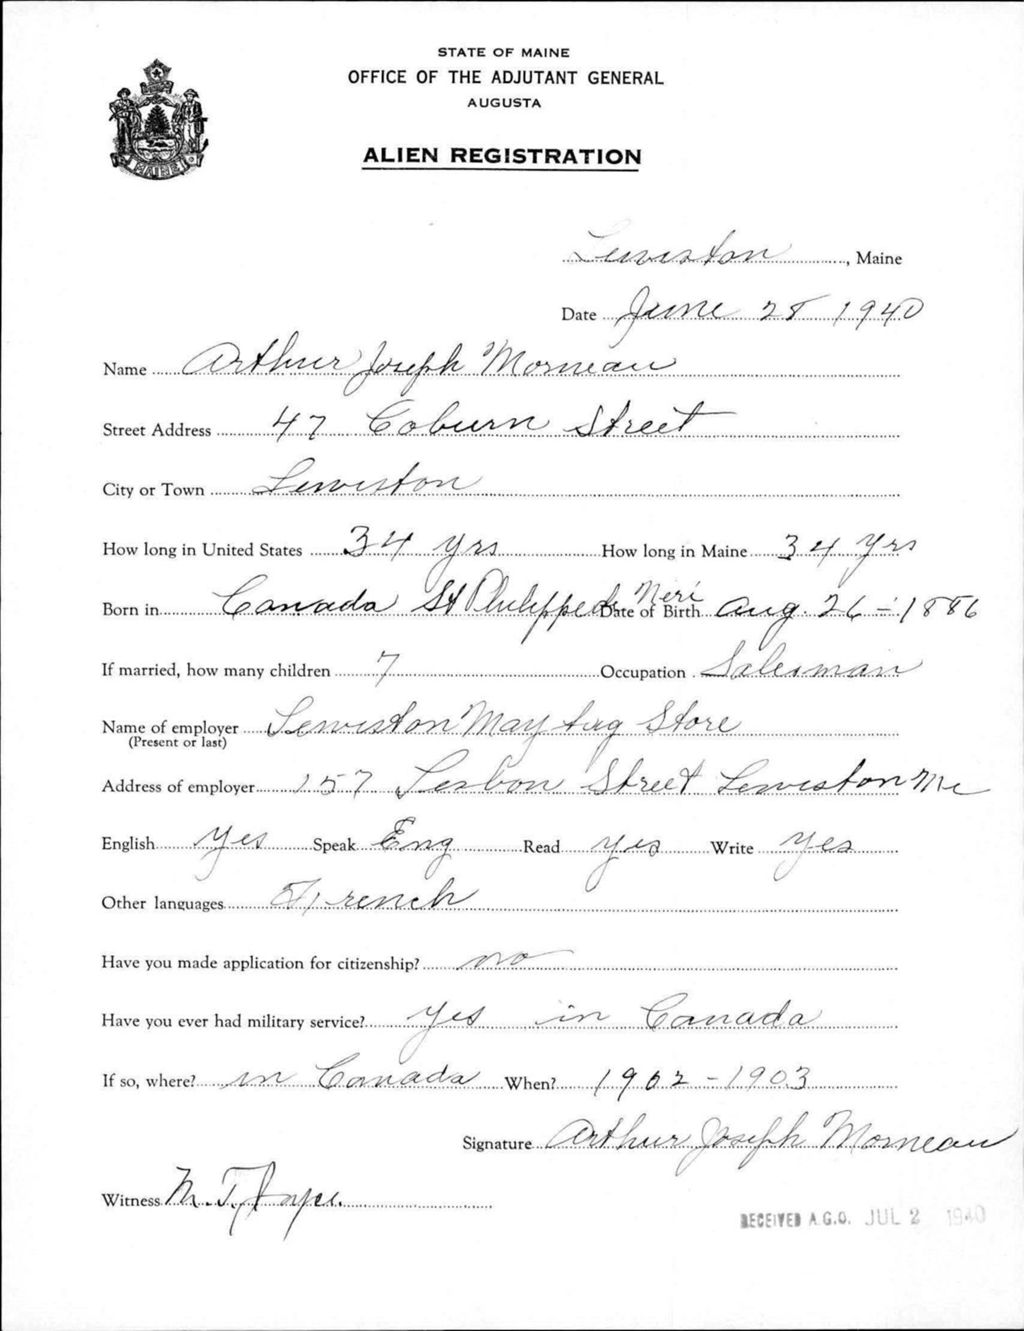 STATE OF MAINE
OFFICE OF THE ADJUTANT GENERAL
AUGUSTA
ALIEN REGISTRATION
MAINE
Lewiston, Maine
Date June 28 1940
Name Arthur Joseph Morneau
Street Address 47 Coburn Street
City or Town Lewiston
How long in United States 34 yrs How long in Maine 34 yrs
Born in Canada St Philippe de Neri Date of Birth Aug. 26 - 1886
If married, how many children 7 Occupation Salesman
Name of employer Lewiston Maytag Store
(Present or last)
Address of employer 157 Lisbon Street Lewiston Me
English yes Speak Eng Read yes Write yes
Other languages French
Have you made application for citizenship? no
Have you ever had military service? yes in Canada
If so, where? in Canada When? 1902 - 1903
Signature Arthur Joseph Morneau
Witness M. T. Joyce
RECEIVED A.G.O. JUL 2 1940